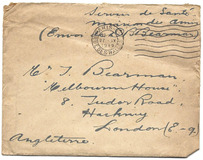 Service de Santé
(Envoi de J. Bearman)
Mr J. Bearman
"Melbourne House"
8, Tudor Road
Hackney
London (E-9)
Angleterre